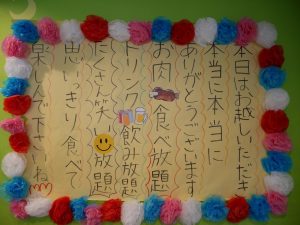 本日はお越しいただき
本当に本当に
ありがとうございます
お肉食べ放題
ドリンク飲み放題
たくさん笑い放題
思いっきり食べて
楽しんで下さいね